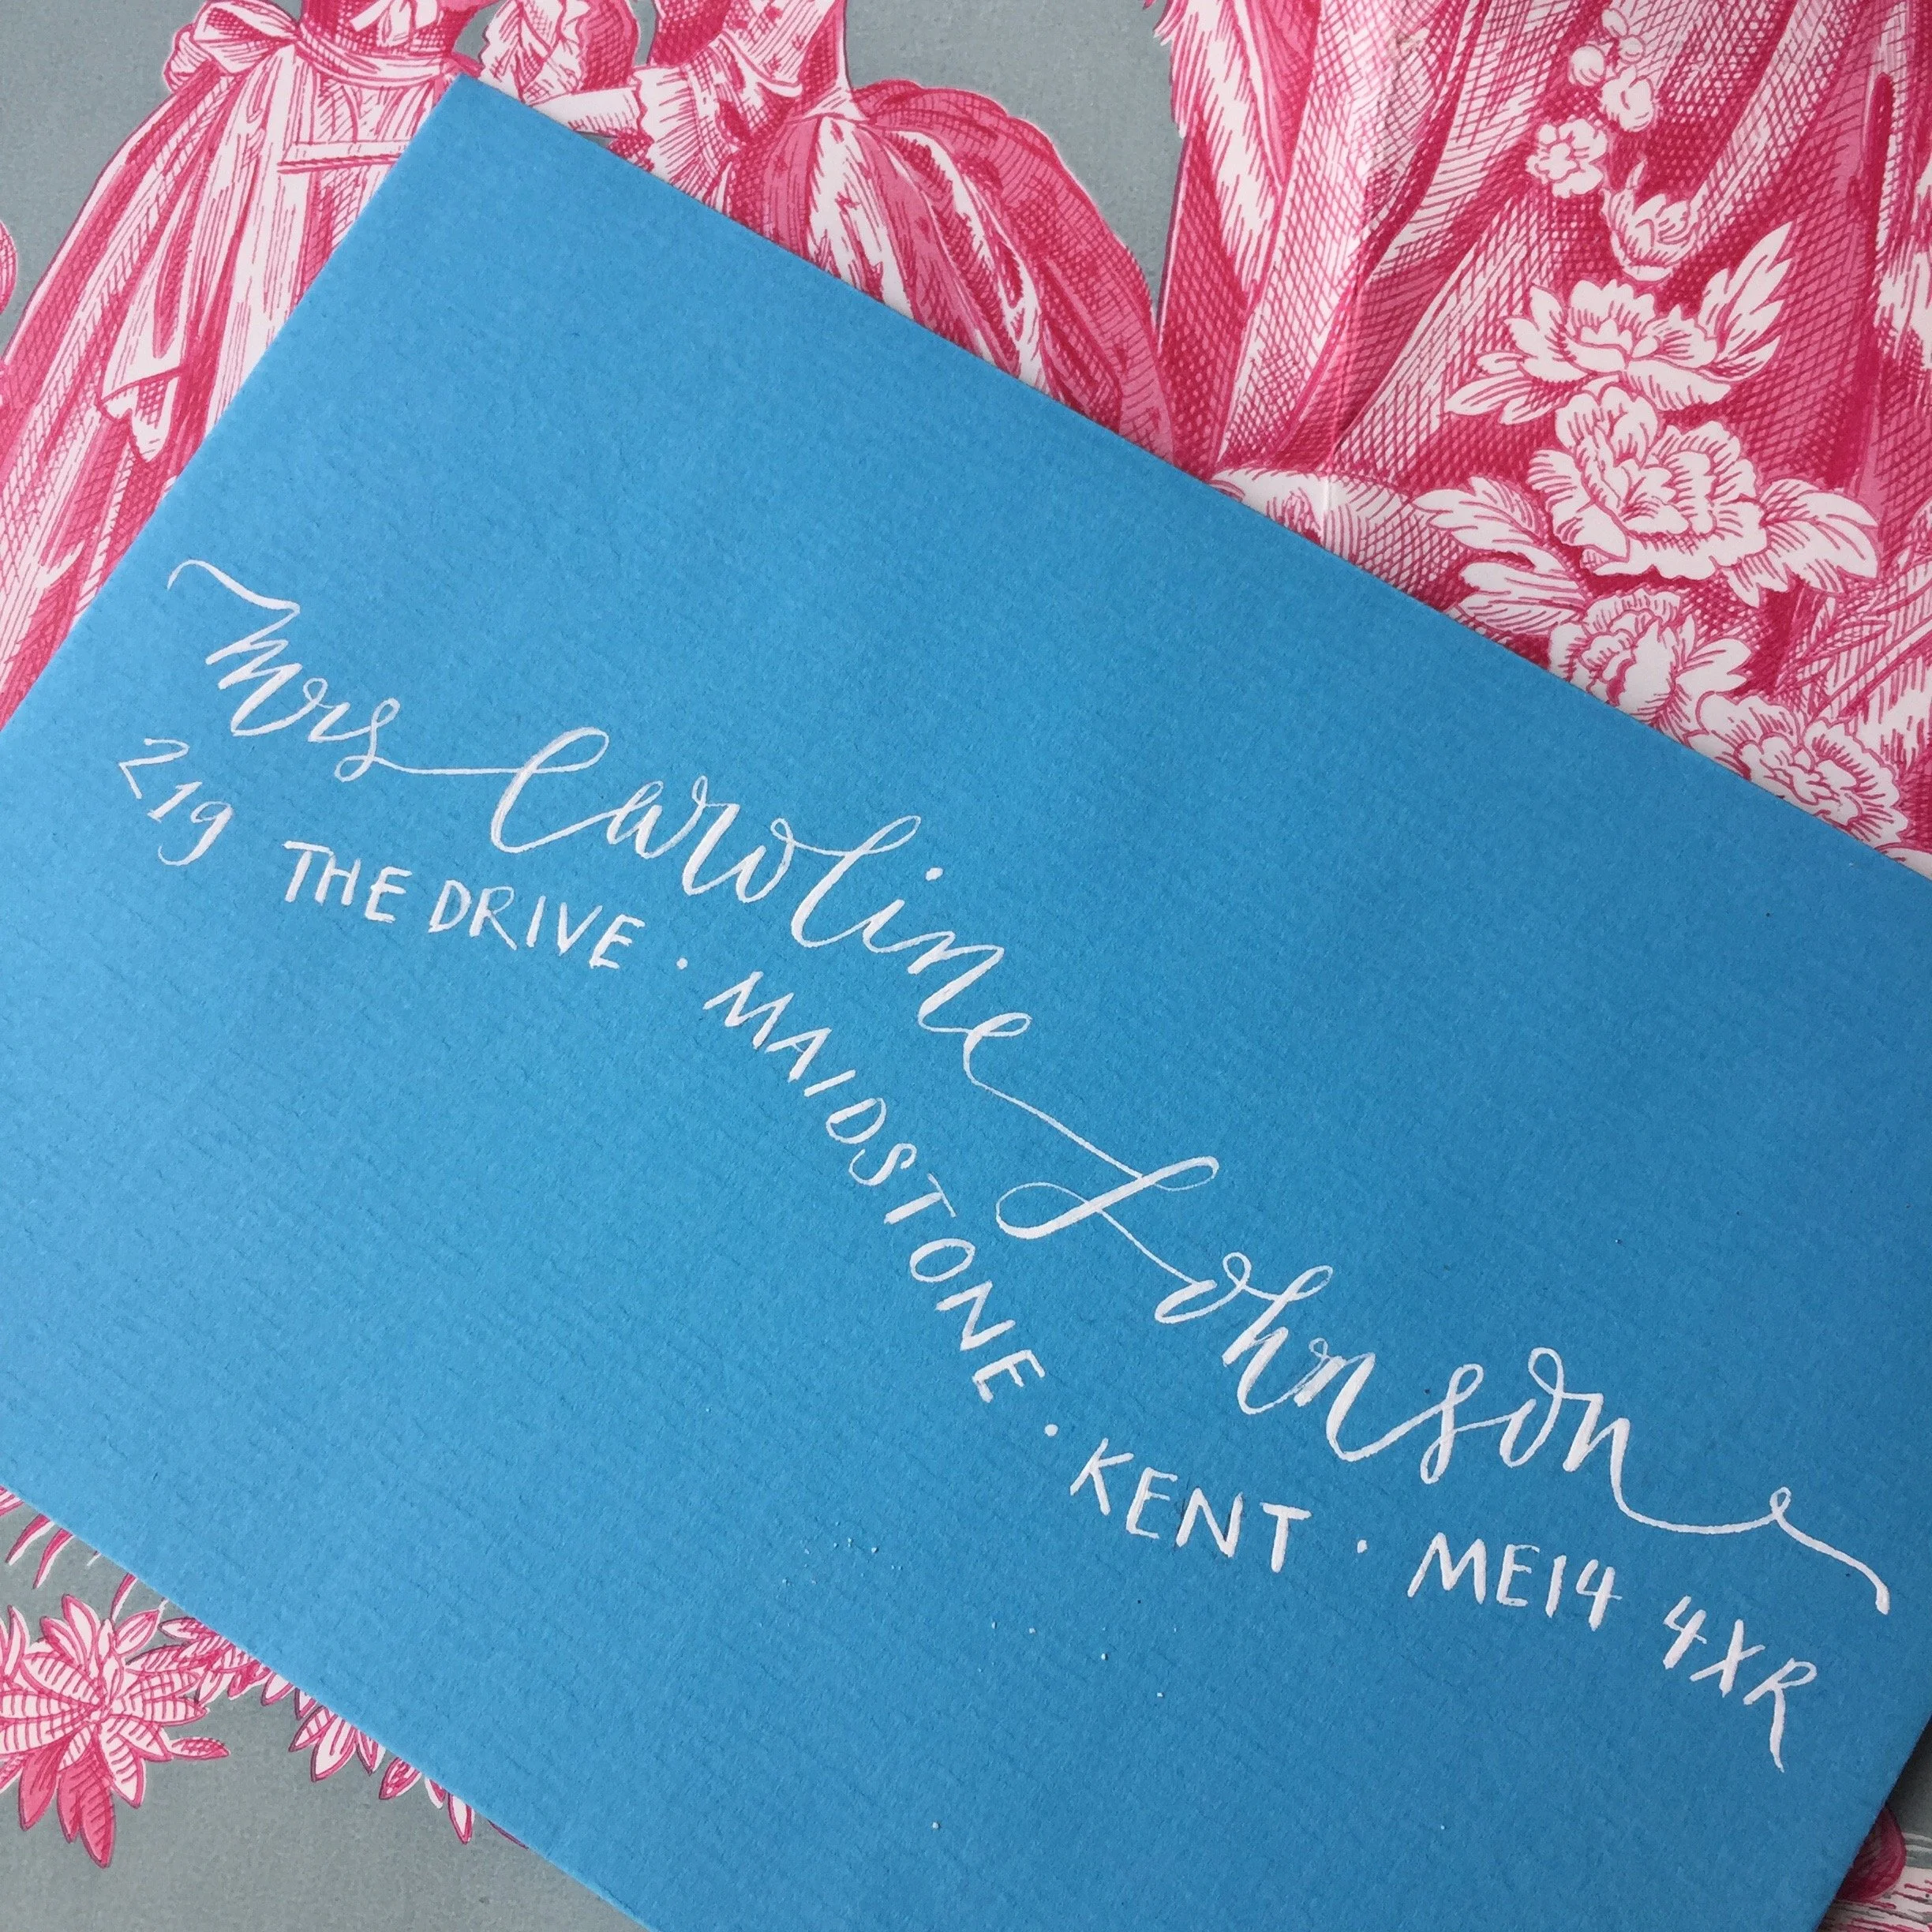 Mrs Caroline Johnson
219 THE DRIVE · MAIDSTONE · KENT · ME14 4XR